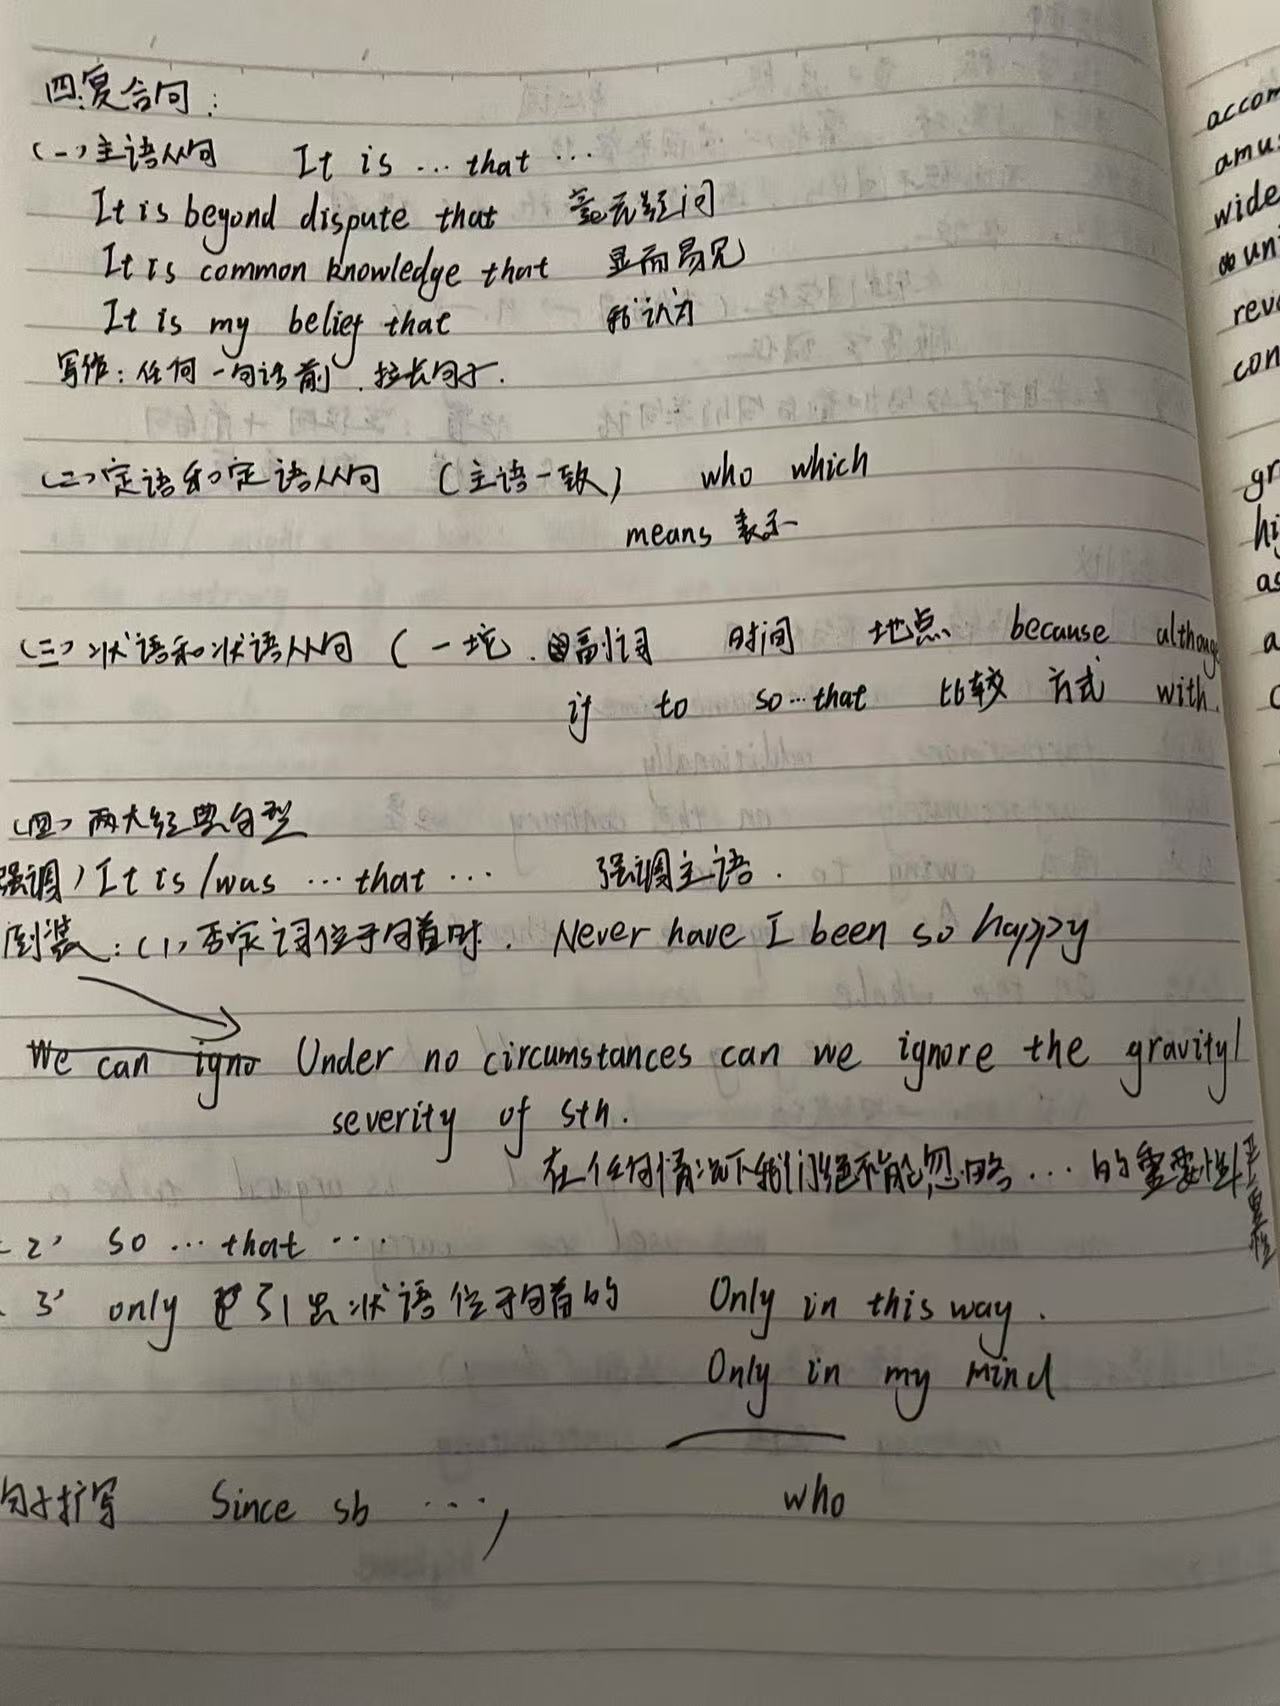 四.复合句：
(一)主语从句 It is … that …
It is beyond dispute that 毫无疑问
It is common knowledge that 显而易见
It is my belief that 我认为
写作：任何一句话前．拉长句子．
(二)定语和定语从句 (主语一致) who which
means 表示
(三)状语和状语从句 (一坨．副词 时间 地点 because although
if to so…that 比较 方式 with
(四)两大经典句型
强调) It is/was … that … 强调主语．
倒装：(1)否定词位于句首时． Never have I been so happy
We can igno Under no circumstances can we ignore the gravity/
severity of sth.
在任何情况下我们绝不能忽略…的重要性/严重性
2) so … that …
3) only 引出状语位于句首的 Only in this way.
Only in my mind
句子扩写 Since sb …, who
accom
amu
wide
un
rev
con
gr
hi
as
a